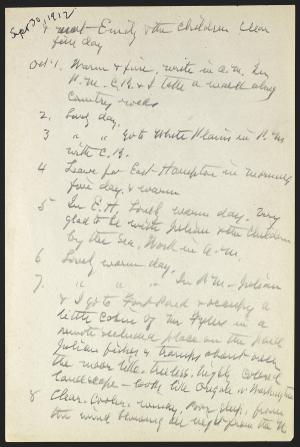 Sept 30, 1912
& meet Emily & the children Clear
fine day
Oct 1. Warm & fine, write in a.m. In
P.M. C.B. & I take a walk along
Country roads
2. Lovely day.
3 " " Go to White Plains in P.M
with C.B.
4 Leave for East Hampton in morning
fine day & warm
5 In E.H. Lovely warm day. Very
glad to be with Julian & the children
by the Sea. Work in a.m.
6 Lovely warm day.
7. " " " In P.M. Julian
& I go to Ford Pond & occupy a
little Cabin of Mr in a
remote secluded place on the pond
Julian fishes & tramps about over
the moor like, treeless, highly colored
landscape - looks like Oregon or Washington
8 Clear, Cooler, windy, poor sleep, from
the wind blowing all night from the N